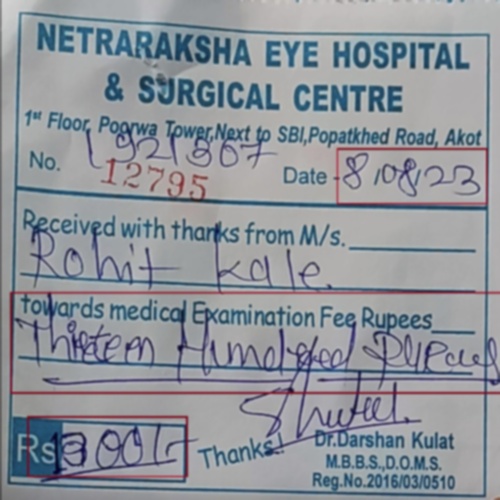 NETRARAKSHA EYE HOSPITAL
& SURGICAL CENTRE
1st Floor, Poorwa Tower,Next to SBI,Popatkhed Road, Akot
No. 1921367
12795 Date - 8/08/23
Received with thanks from M/s.
Rohit Kale
towards medical Examination Fee Rupees
Thirteen Hundred Rupees
Rs 1300/- Thanks! Dr.Darshan Kulat
M.B.B.S.,D.O.M.S.
Reg.No.2016/03/0510